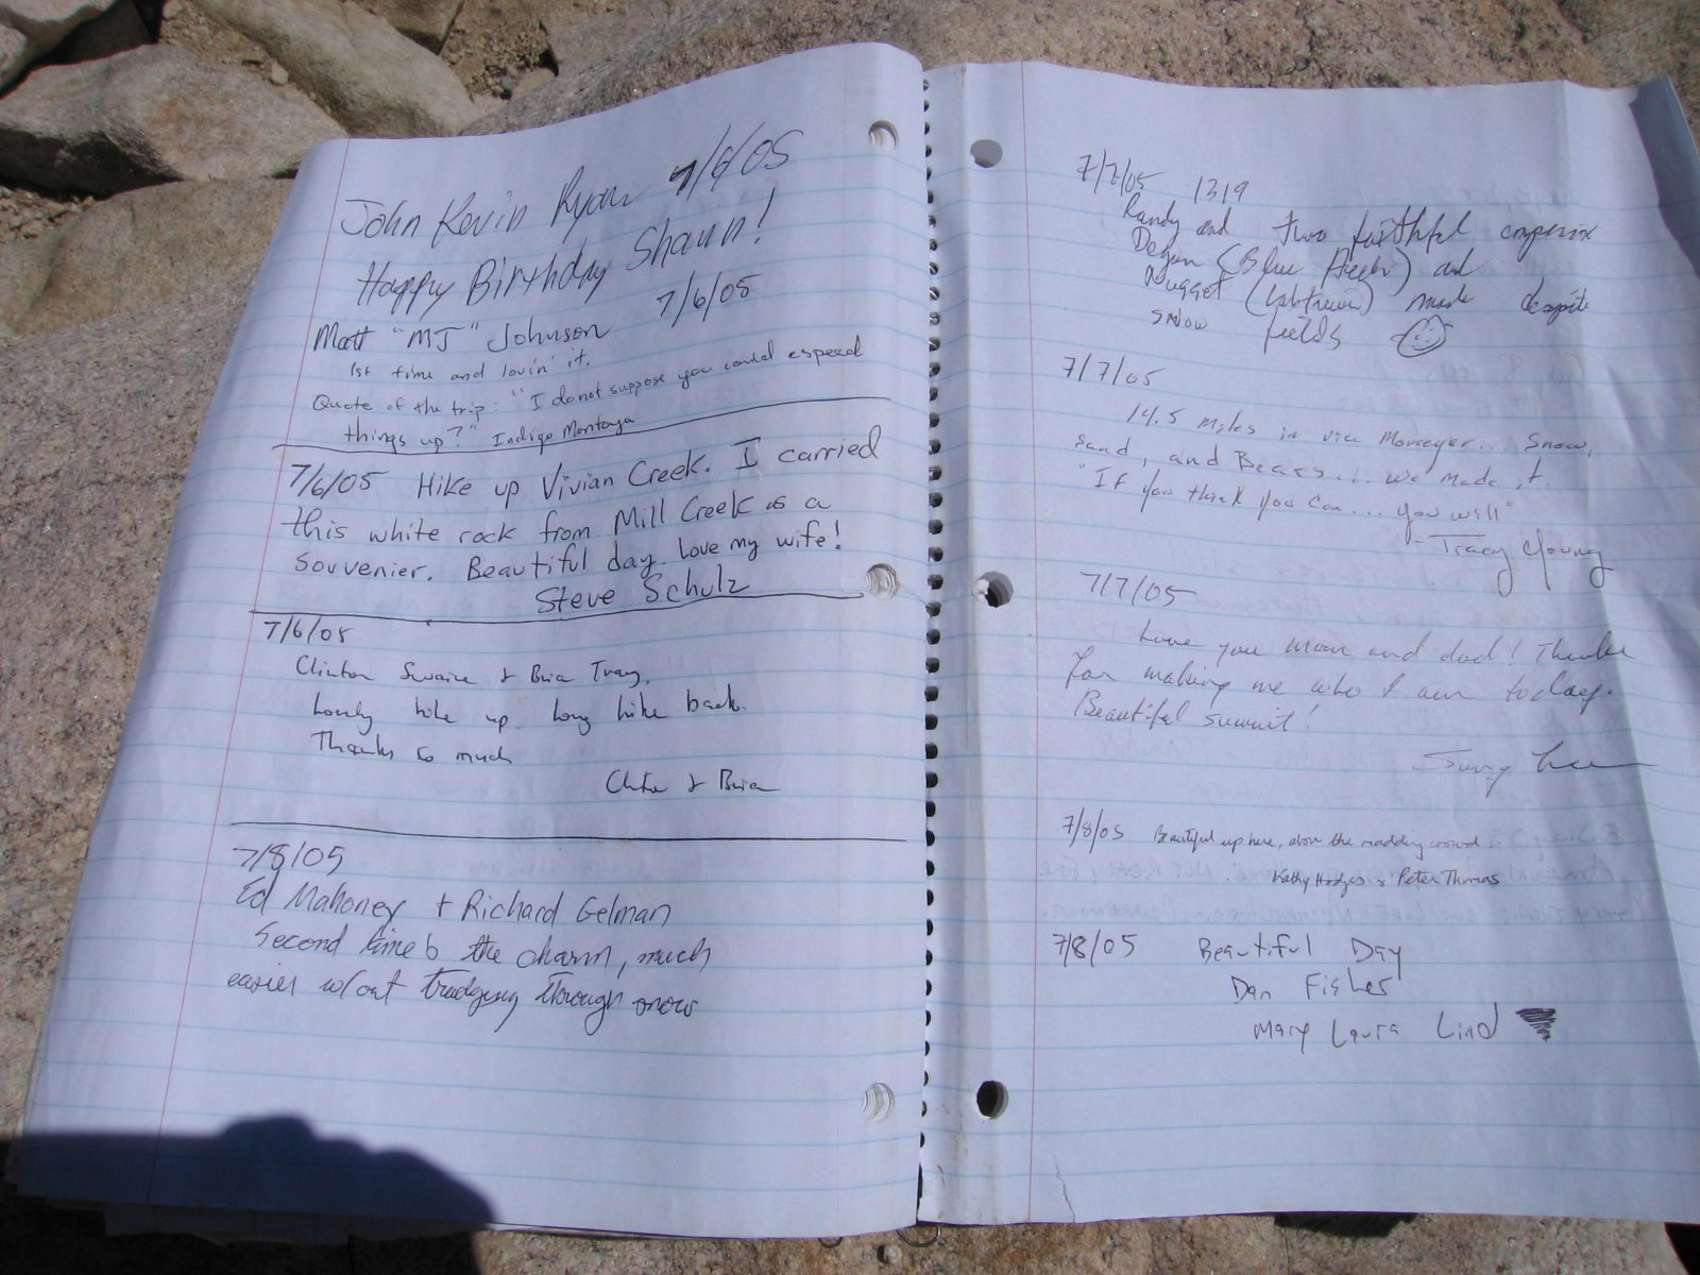 John Kevin Ryan 7/6/05
Happy Birthday Shaun!
Matt "MJ" Johnson 7/6/05
1st time and lovin' it.
Quote of the trip: "I do not suppose you could espeed
things up?" Indigo Montoya
7/6/05 Hike up Vivian Creek. I carried
this white rock from Mill Creek as a
souvenier. Beautiful day. Love my wife!
Steve Schulz
7/6/05
Clinton & Bria
Lovely hike up. Long hike back.
Thanks so much
& Bria
7/8/05
Ed Mahoney + Richard Gelman
Second time is the charm, much
easier w/out trudging through snow
7/7/05 1319
Randy and two faithful
(Blue Heeler) and
Nugget made despite
snow fields
7/7/05
14.5 miles in via Momeyer... Snow,
sand, and Bears... we made it.
"If you think you can... you will"
- Tracy Young
7/7/05
Love you mom and dad! Thanks
for making me who I am today.
Beautiful summit!
7/8/05 Beautiful up here, above the madding crowd.
Kathy Hodges & Peter Thomas
7/8/05 Beautiful Day
Dan Fisher
Mary Laura Lind